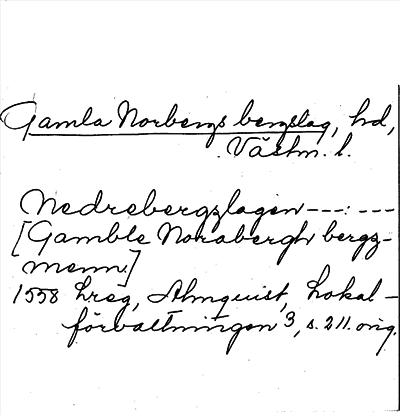 Gamla Norbergs bergslag, hd,
Västm. l.
Nedrebergzlagen ---:---
[Gamble Norabergh bergz-
menn.]
1558 hreg, Almquist, Lokal-
förvaltningen 3, s. 211. orig.